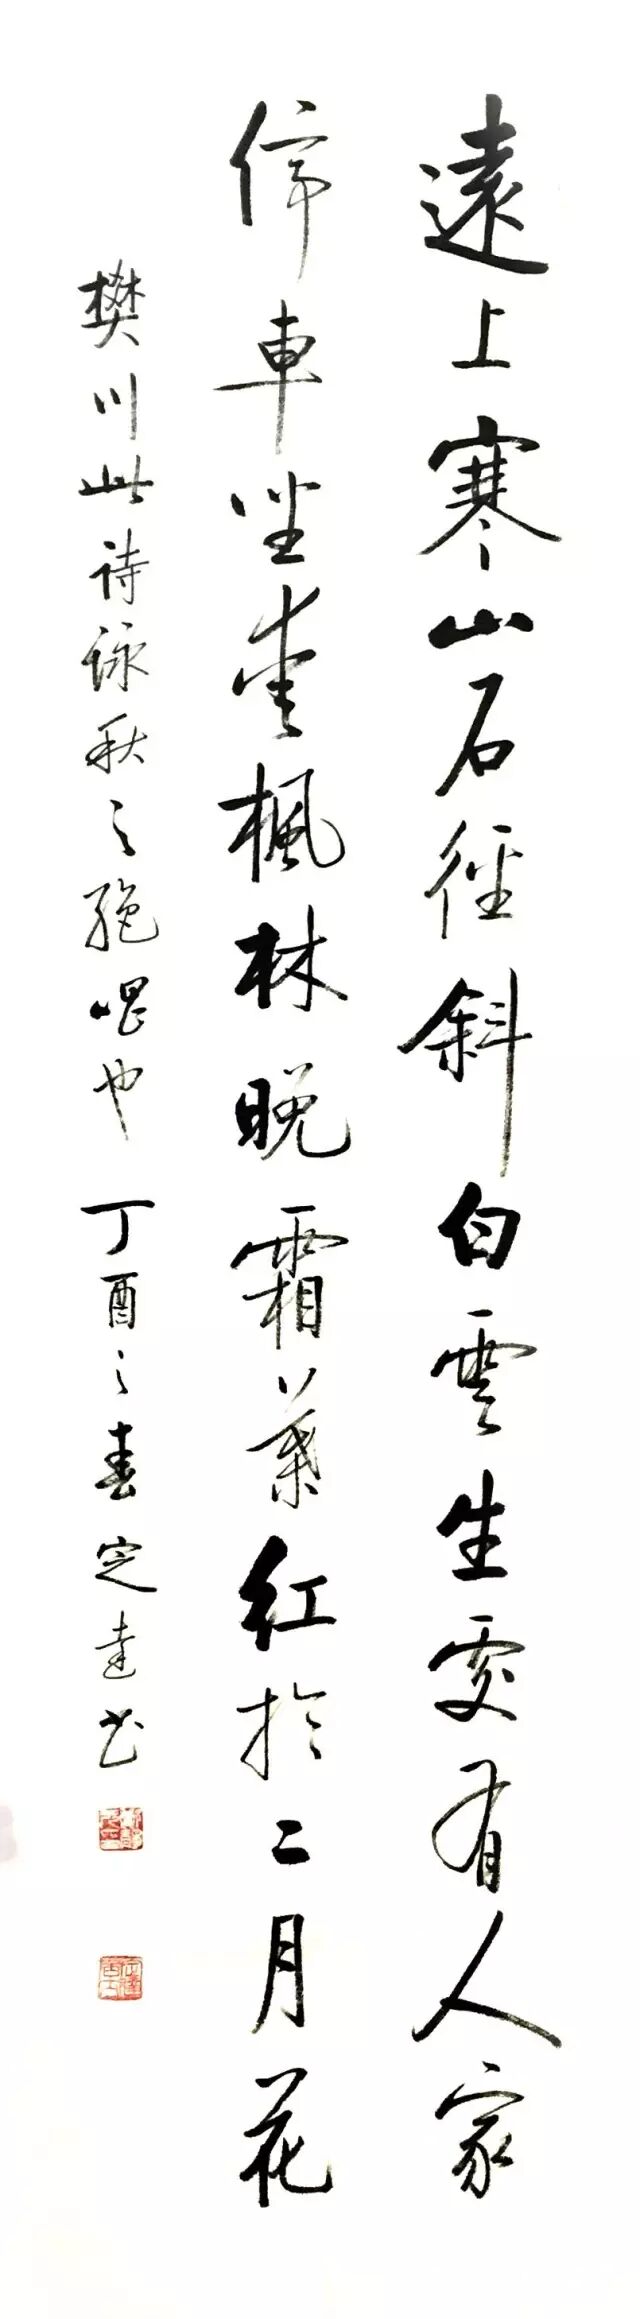 遠上寒山石徑斜白雲生處有人家
停車坐愛楓林晚霜葉紅於二月花
樊川此詩詠秋之絕唱也丁酉之春定達书